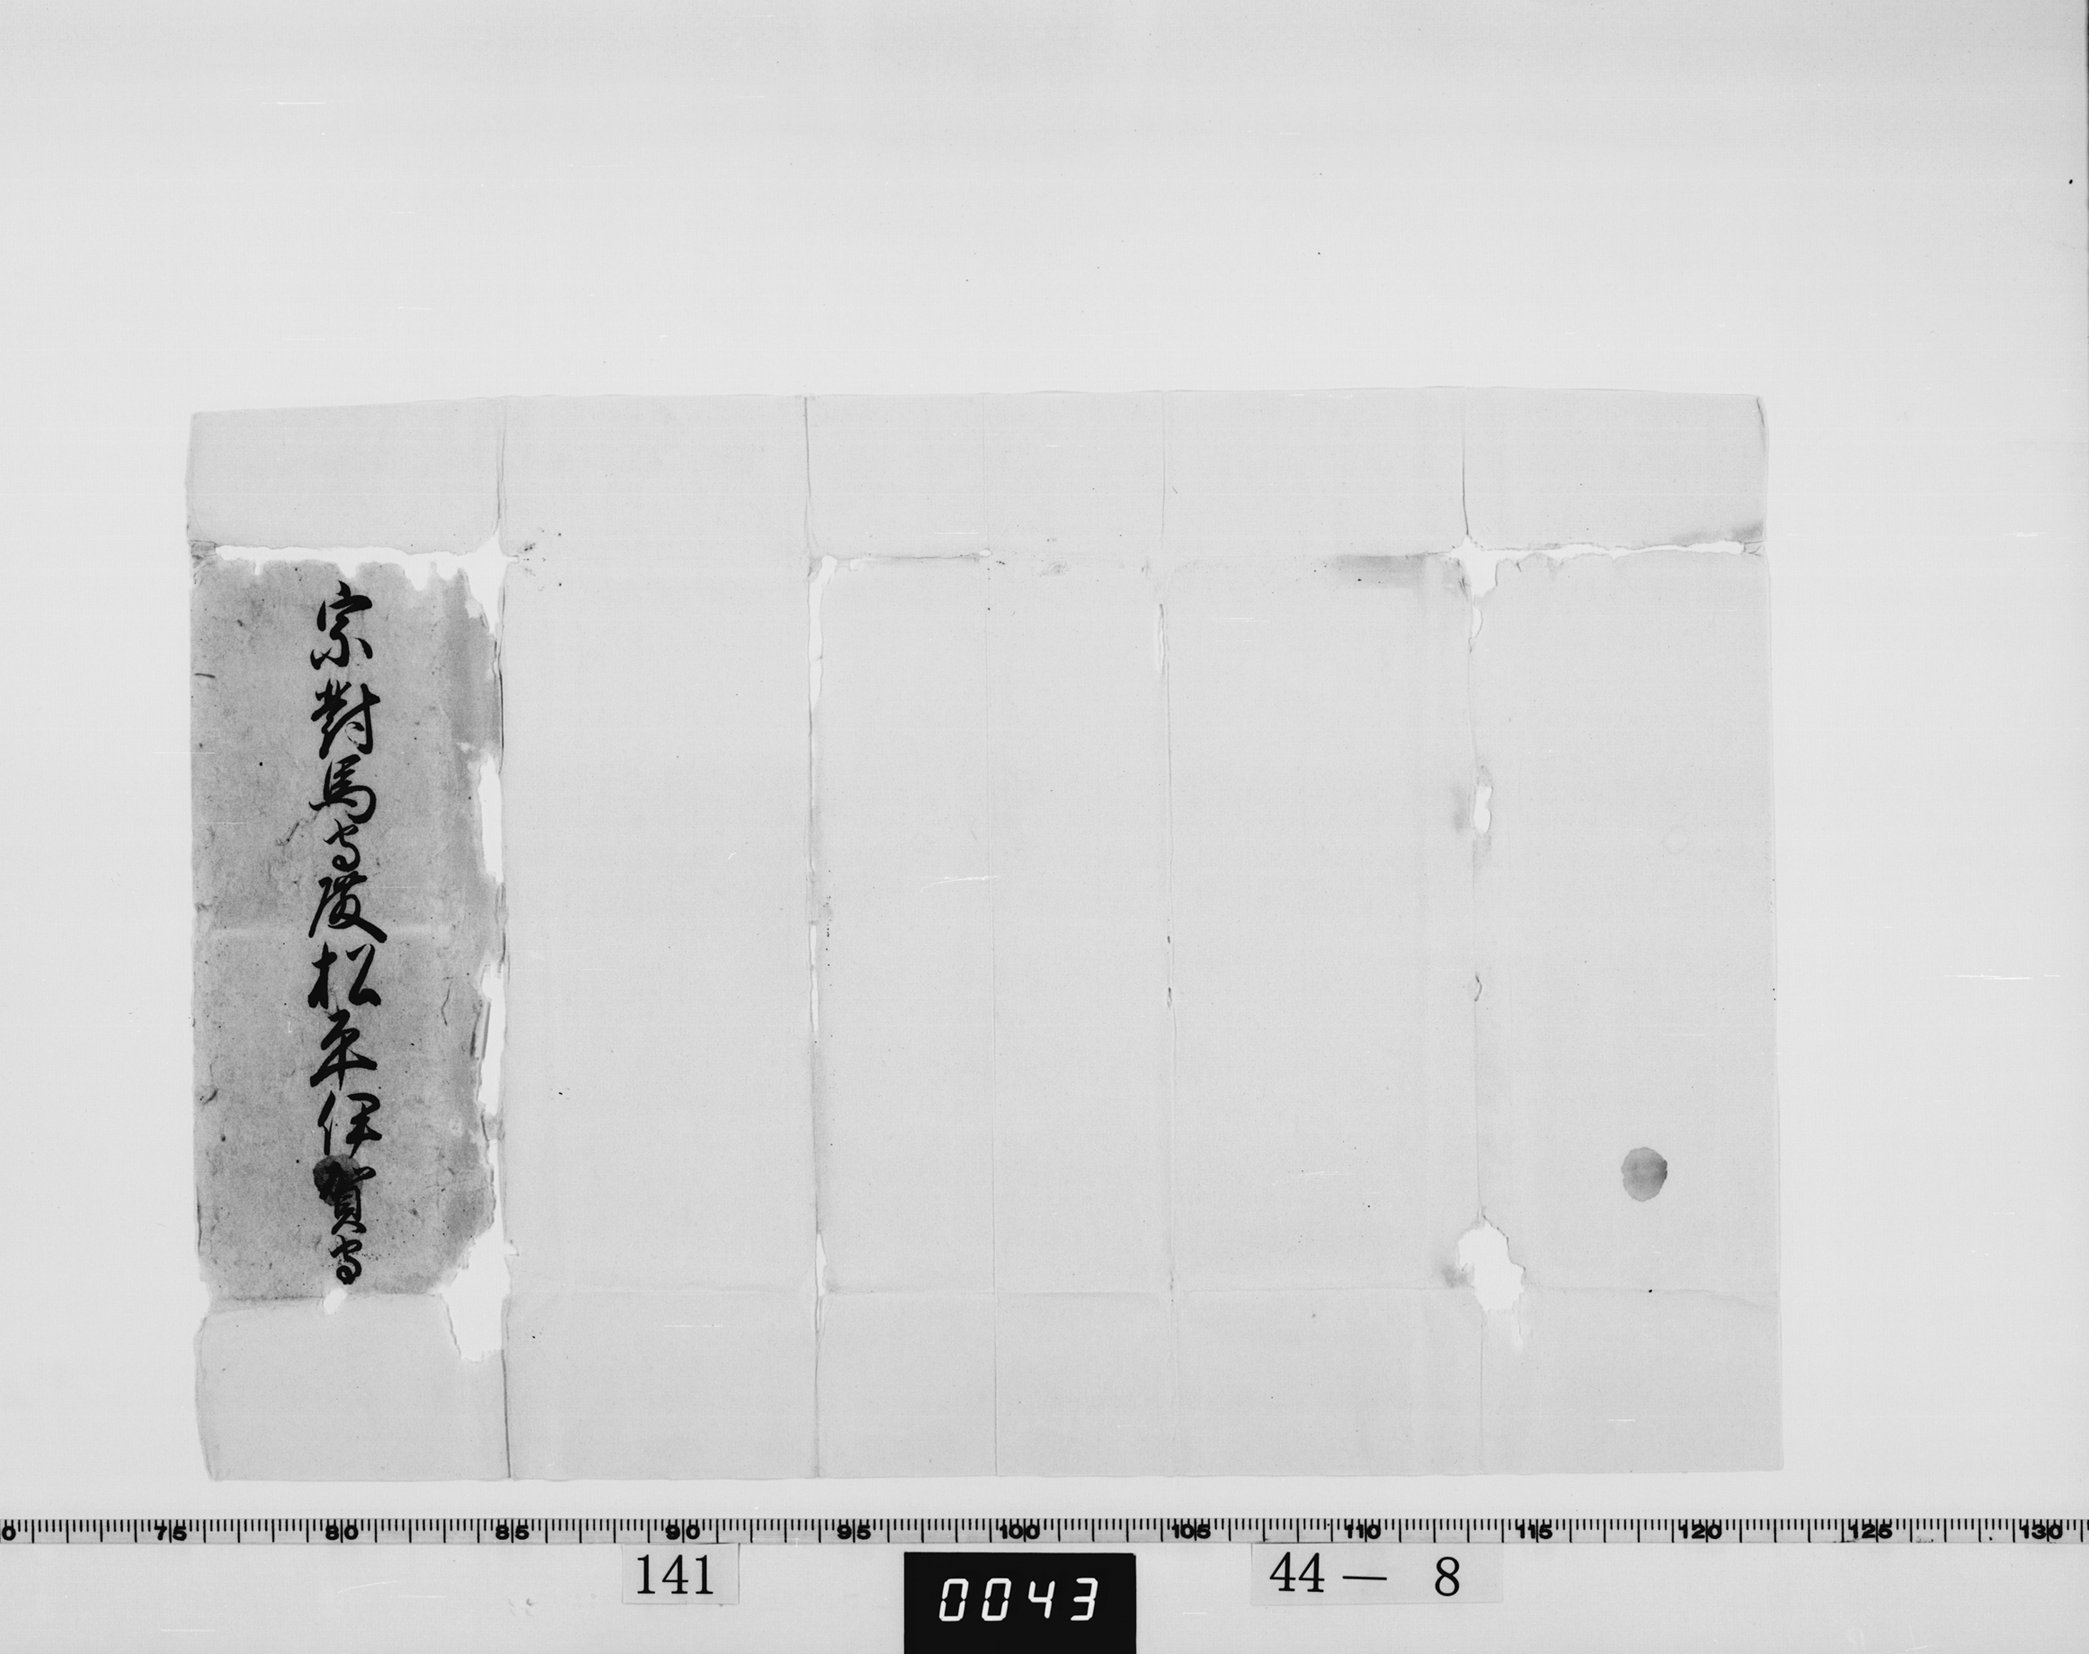 宗對馬守殿松平伊賀守
0 75 80 85 90 95 100 105 110 115 120 125 130
141
0043
44 — 8